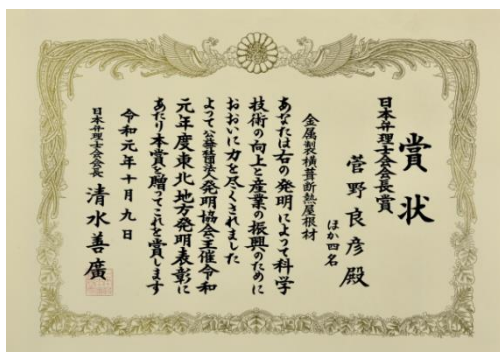 賞状
日本弁理士会会長賞
菅野良彦殿
ほか四名
金属製横葺断熱屋根材
あなたは右の発明によって科学
技術の向上と産業の振興のために
おおいに力を尽くされました
よって公益社団法人発明協会主催令和
元年度東北地方発明表彰に
あたり本賞を贈ってこれを賞します
令和元年十月九日
日本弁理士会会長 清水善廣